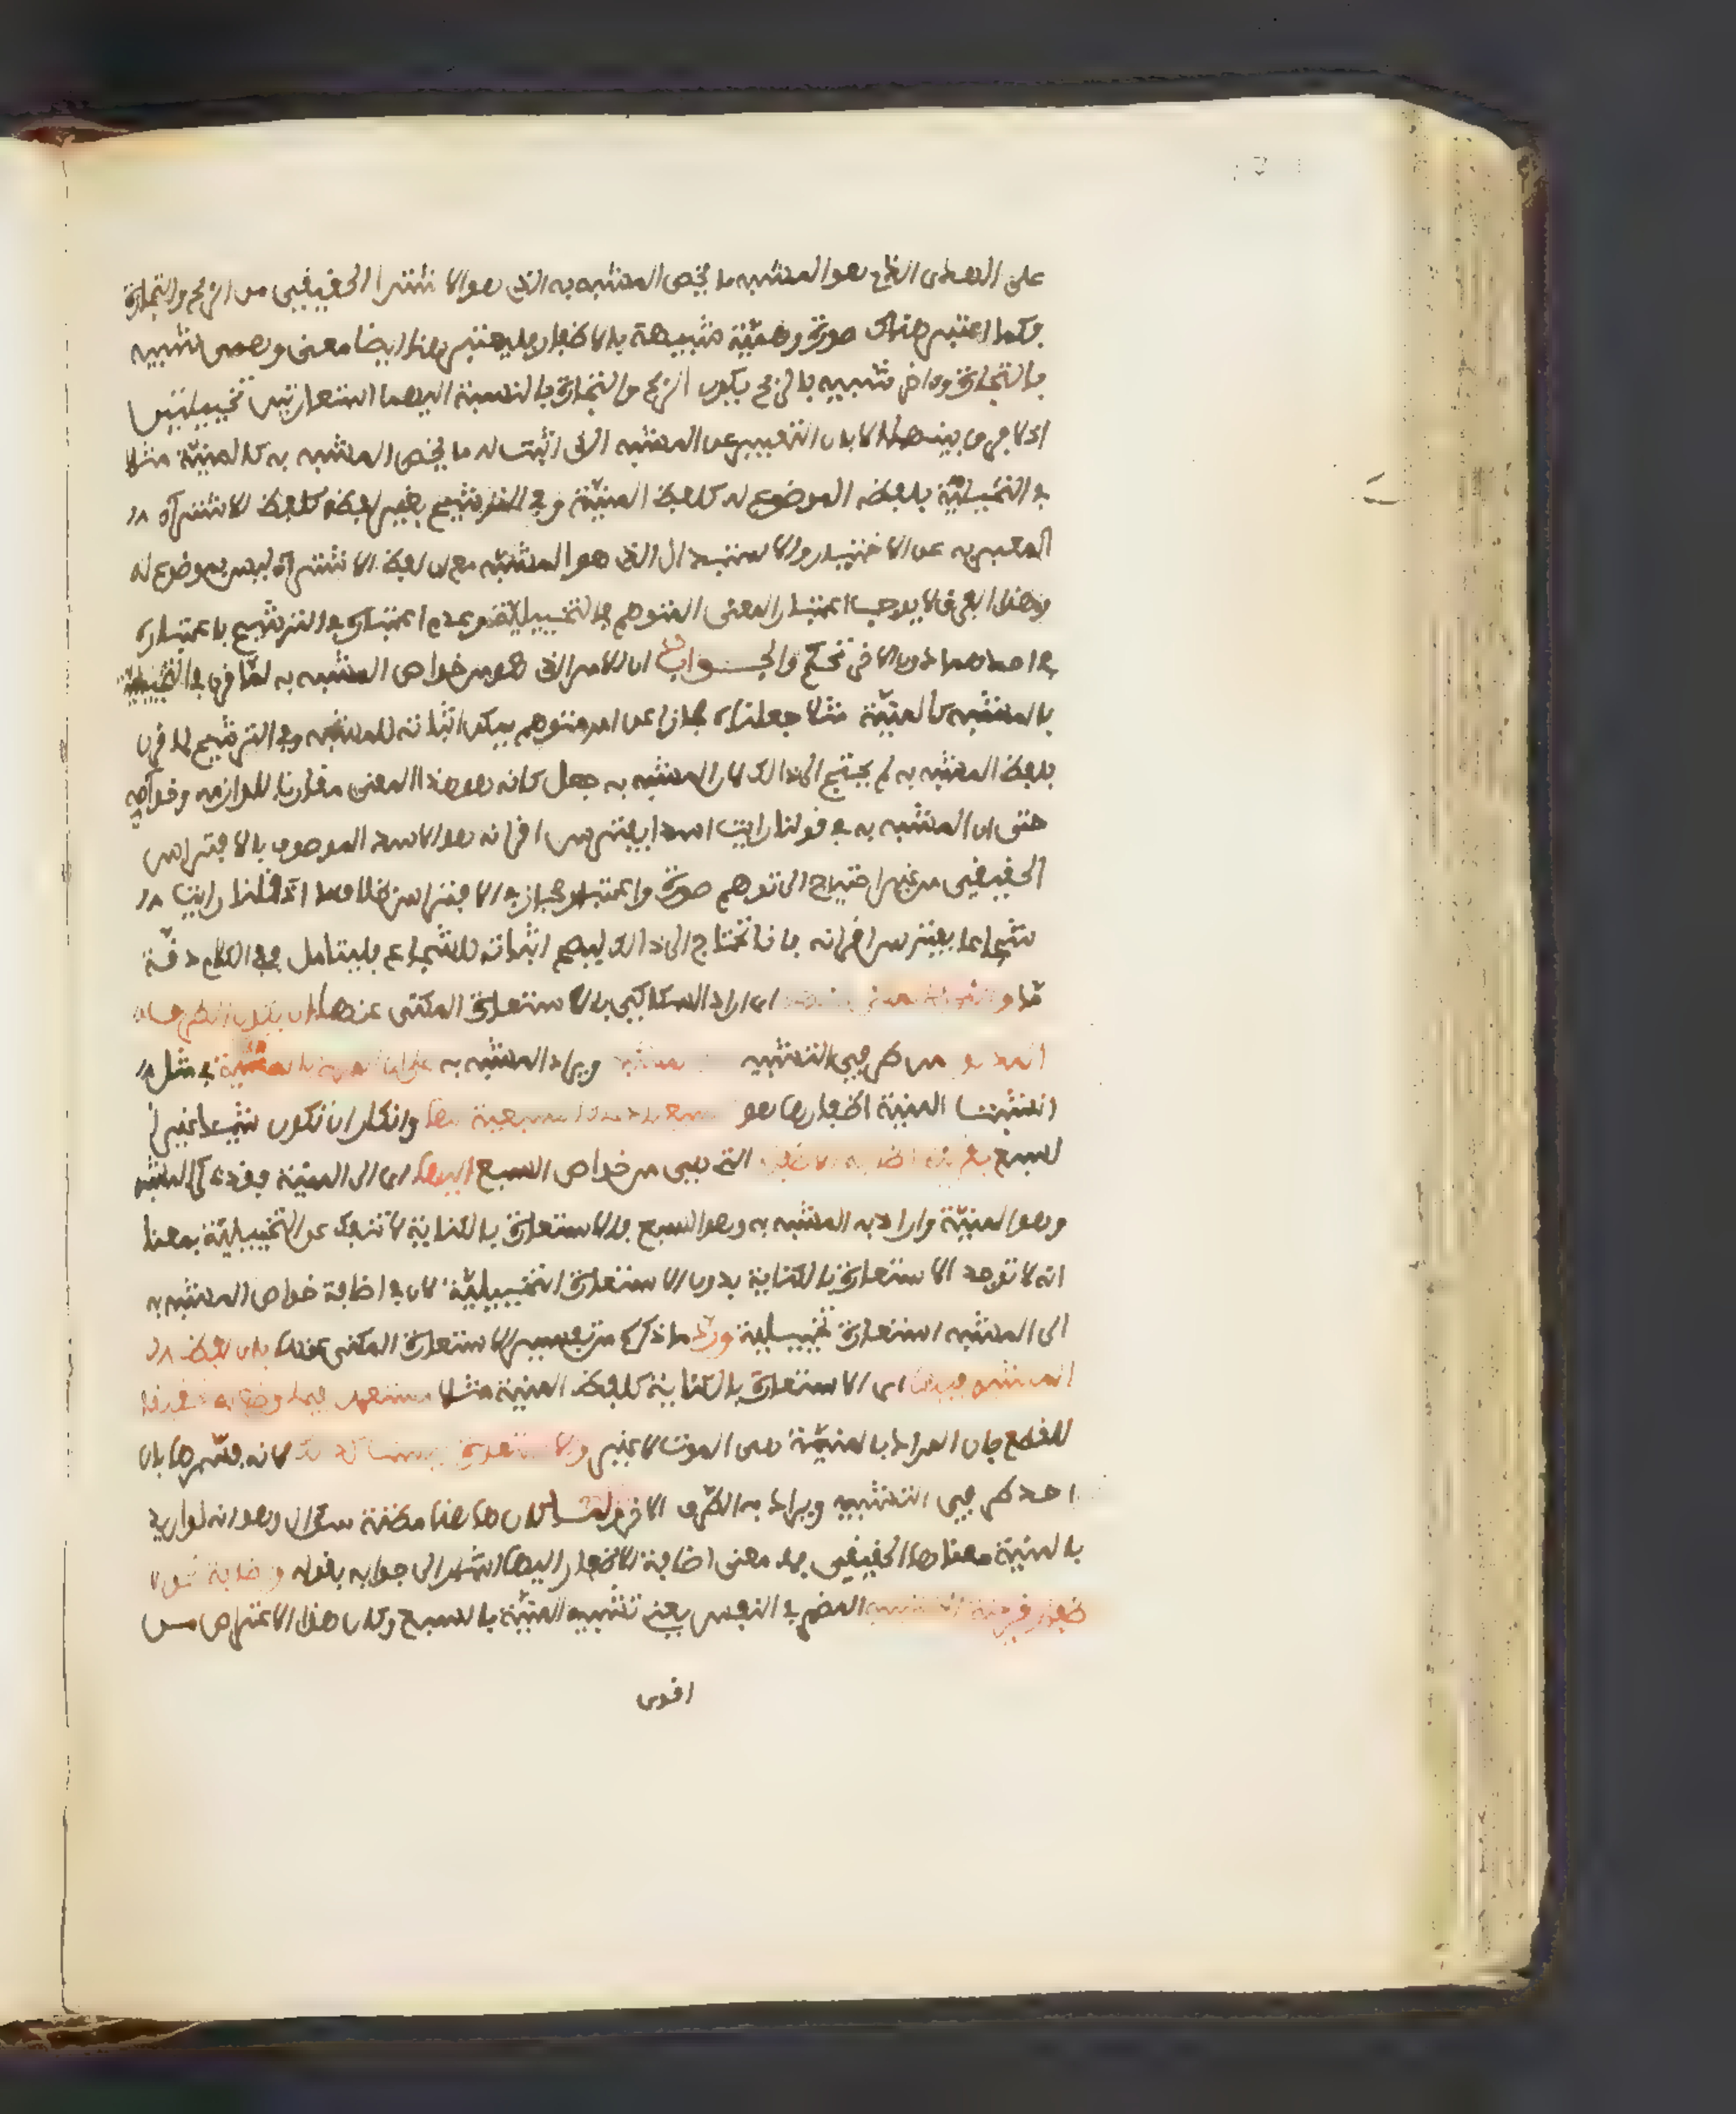 على الهدى الذي هو المشبه ما يخص المشبه به الذي هو الاشترا الحقيقي من الربح والتجارة
فكما اعتبر هناك صورة وهمية شبيهة بالاظفار فليعتبر هنا ايضا معنى وهمى شبيه
بالتجارة وءاخر شبيه بالربح ليكون الربح والتجارة بالنسبة اليهما استعارتين تخييليتين
اذ لا فرق بينهما الا بان التعبير عن المشبه الذى اثبت له ما يخص المشبه به كالمنية مثلا
في التخييلية بلفظه الموضوع له كلفظ المنية وفي الترشيح بغير لفظه كلفظ الاشترآء ال
المعبر به عن الاختيار والاستبدال الذي هو المشبه مع ان لفظ الاشترآء ليس بموضوع له
وهذا الفرق لا يوجب اعتبار المعنى المتوهم في التخييلية وعدم اعتباره في الترشيح فاعتباره
في احدهما دون الاخر تحكم والجـــواب ان الامر الذي هو من خواص المشبه به لما قرن في التخييلية
بالمشبه كالمنية مثلا جعلناه مجازا عن امر متوهم يمكن اثباته للمشبه وفي الترشيح لما قرن
بلفظ المشبه به لم يحتج الى ذالك لان المشبه به جعل كانه هو هذا المعنى مقارنا للوازمه وخواصه
حتى ان المشبه به في قولنا رايت اسدا يفترس اقرانه هو الاسد الموصوف بالافتراس
الحقيقي من غير احتياج الى توهم صورة واعتبار مجاز في الافتراس بخلاف ما اذا قلنا رايت ال
شجاعا يفترس اقرانه فانا نحتاج الى ذالك ليصح اثباته للشجاع فليتامل ففي الكلام دقة
ما و اى اراد السكاكي بالاستعارة المكنى عنها ان يكون الطرف ال
من طرفي التشبيه ويراد المشبه به على ان المراد بالمنية في مثل
انشبت المنية اظفارها هو السبع بادعاء السبعية لها وانكار ان تكون شيئا غير ا
لسبع بقرينة اضافة الاظفار التي هي من خواص السبع اليها اى الى المنية فقد ذكر المشبه
وهو المنية واراد به المشبه به وهو السبع فالاستعارة بالكناية لا تنفك عن التخييلية بمعنا
انه لا توجد الاستعارة بالكناية بدون الاستعارة التخييلية لان في اضافة خواص المشبه به
الى المشبه استعارة تخييلية ورد ما ذكره من تفسير الاستعارة المكنى عنها بان لفظ ال
المشبه فيها اى الاستعارة بالكناية كلفظ المنية مثلا مستعمل فيما وضع له تحقيقا
للقطع بان المراد بالمنية هى الموت لا غير والاستعارة ليست كذلك لانه فسرها بان
احد طرفي التشبيه ويراد به الطرف الاخر ولما كان هاهنا مظنة سؤال وهو انه لو اريد
بالمنية معناها الحقيقي فما معنى اضافة الاظفار اليها اشار الى جوابه بقوله واضافة نحو ال
ظفار قرينة التشبيه المضمر في النفس يعني تشبيه المنية بالسبع وكان هذا الاعتراض من
اقوى